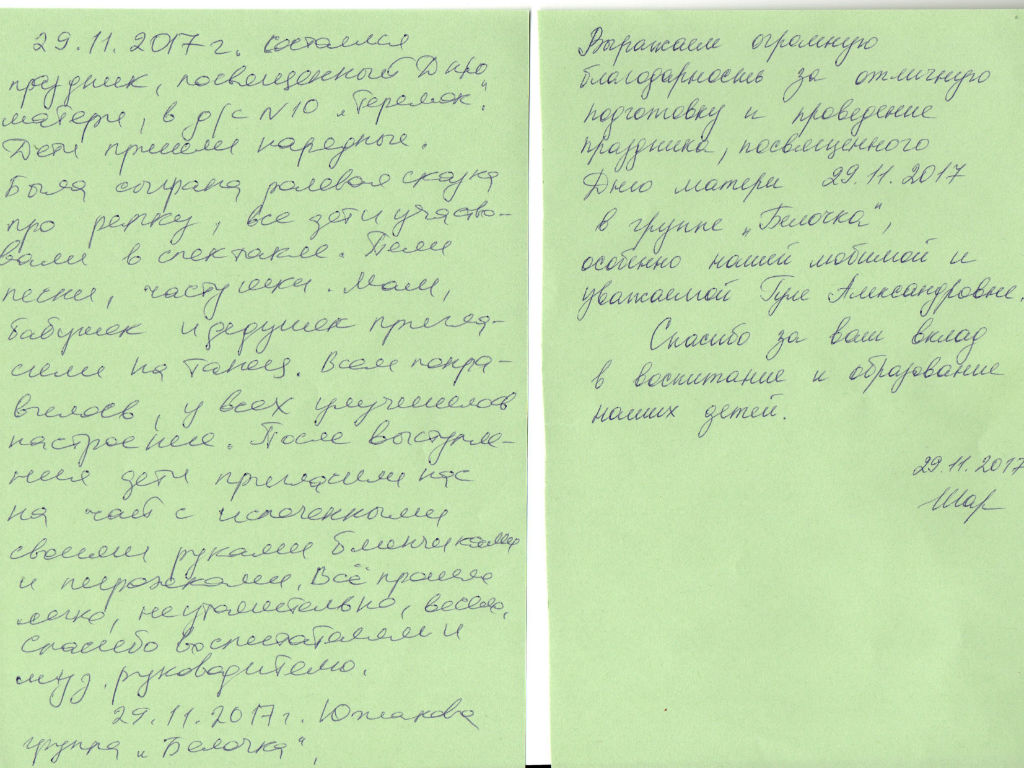 29.11.2017 г. состоялся
праздник, посвященный Дню
матери, в д/с №10 „Теремок".
Дети пришли нарядные.
Была сыграна ролевая сказка
про репку, все дети участво-
вали в спектакле. Пели
песни, частушки. Мам,
бабушек и дедушек пригла-
сили на танец. Всем понра-
вилось, у всех улучшилось
настроение. После выступле-
ния дети пригласили нас
на чай с испеченными
своими руками блинчиками
и пирожками. Всё прошло
легко, неутомительно, весело.
Спасибо воспитателям и
муз. руководителю.
29.11.2017 г. Южакова
группа „Белочка",
Выражаем огромную
благодарность за отличную
подготовку и проведение
праздника, посвященного
Дню матери 29.11.2017
в группе „Белочка",
особенно нашей любимой и
уважаемой Гуле Александровне.
Спасибо за ваш вклад
в воспитание и образование
наших детей.
29.11.2017
Шар